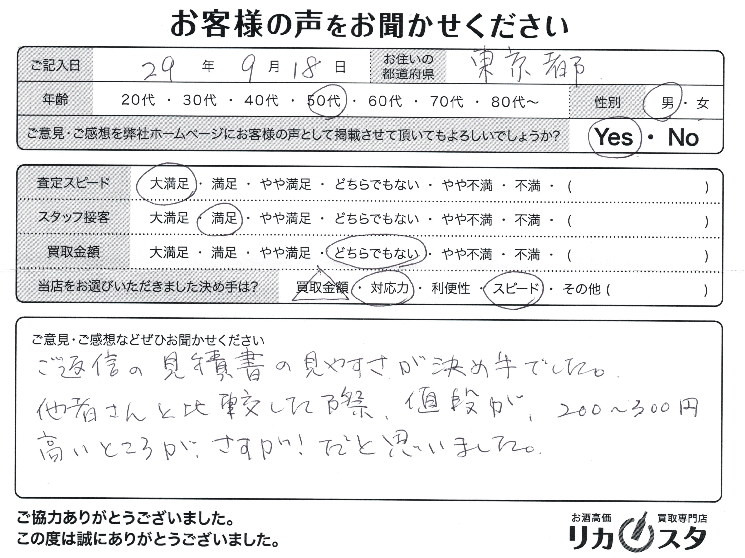 お客様の声をお聞かせください
ご記入日 29 年 9 月 18 日 お住いの都道府県 東京都
年齢 20代 ・ 30代 ・ 40代 ・ 50代 ・ 60代 ・ 70代 ・ 80代〜 性別 男 ・ 女
ご意見・ご感想を弊社ホームページにお客様の声として掲載させて頂いてもよろしいでしょうか? Yes ・ No
査定スピード 大満足 ・ 満足 ・ やや満足 ・ どちらでもない ・ やや不満 ・ 不満 ・ ( )
スタッフ接客 大満足 ・ 満足 ・ やや満足 ・ どちらでもない ・ やや不満 ・ 不満 ・ ( )
買取金額 大満足 ・ 満足 ・ やや満足 ・ どちらでもない ・ やや不満 ・ 不満 ・ ( )
当店をお選びいただきました決め手は? 買取金額 ・ 対応力 ・ 利便性 ・ スピード ・ その他 ( )
ご意見・ご感想などぜひお聞かせください
ご返信の見積書の見やすさが決め手でした。
他者さんと比較した際、値段が、200〜300円
高いところが、さすが!だと思いました。
ご協力ありがとうございました。
この度は誠にありがとうございました。
お酒高価 買取専門店
リカスタ